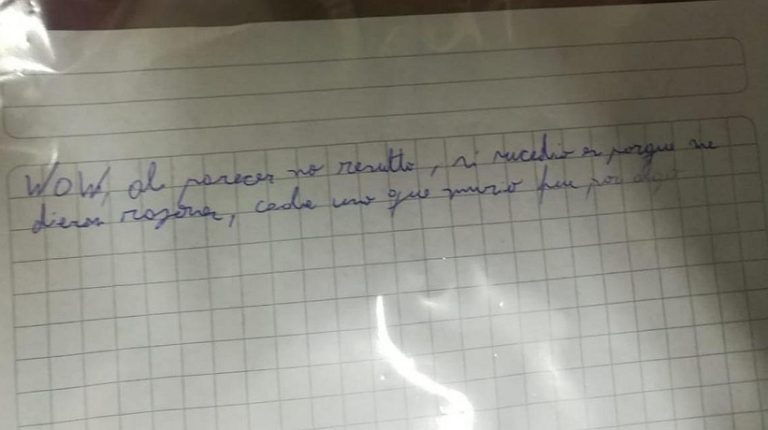 WOW, al parecer no resulto, si sucedio es porque me
dieron razones, cada uno que murio fue por algo